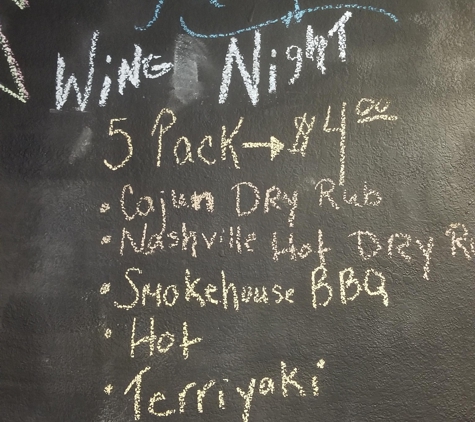 Wing Night
5 Pack → $4.00
• Cajun Dry Rub
• Nashville Hot Dry R
• Smokehouse BBQ
• Hot
• Terriyaki